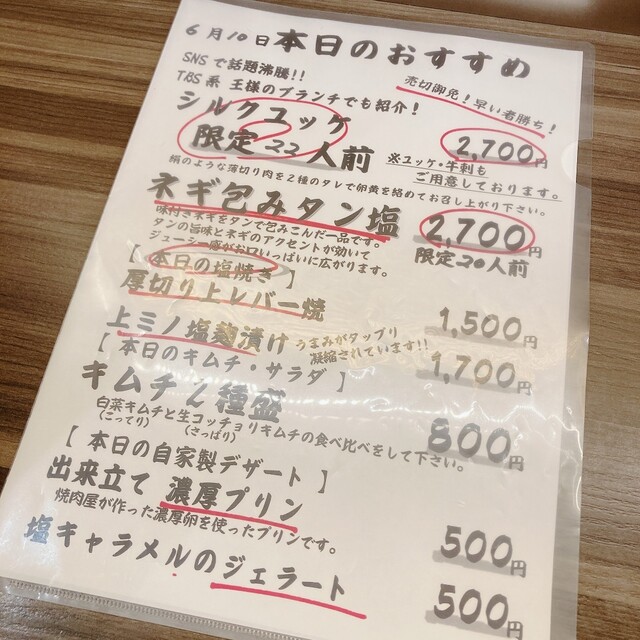 6月10日本日のおすすめ
SNSで話題沸騰!!
TBS系 王様のブランチでも紹介！
売切御免！早い者勝ち！
シルクユッケ
限定22人前
2,700円
※ユッケ・牛刺も
ご用意しております。
絹のような薄切り肉を2種のタレで卵黄を絡めてお召し上がり下さい。
ネギ包みタン塩
2,700円
味付きネギをタンで包みこんだ一品です。
タンの旨味とネギのアクセントが効いて
ジューシー感がお口いっぱいに広がります。
限定20人前
【 本日の塩焼き 】
厚切り上レバー焼
1,500円
上ミノ塩麹漬け
うまみがタップリ
凝縮されています!!
1,700円
【 本日のキムチ・サラダ 】
キムチ2種盛
800円
白菜キムチと生コッチョリキムチの食べ比べをして下さい。
(こってり) (さっぱり)
【 本日の自家製デザート 】
出来立て 濃厚プリン
500円
焼肉屋が作った濃厚卵を使ったプリンです。
塩キャラメルのジェラート
500円